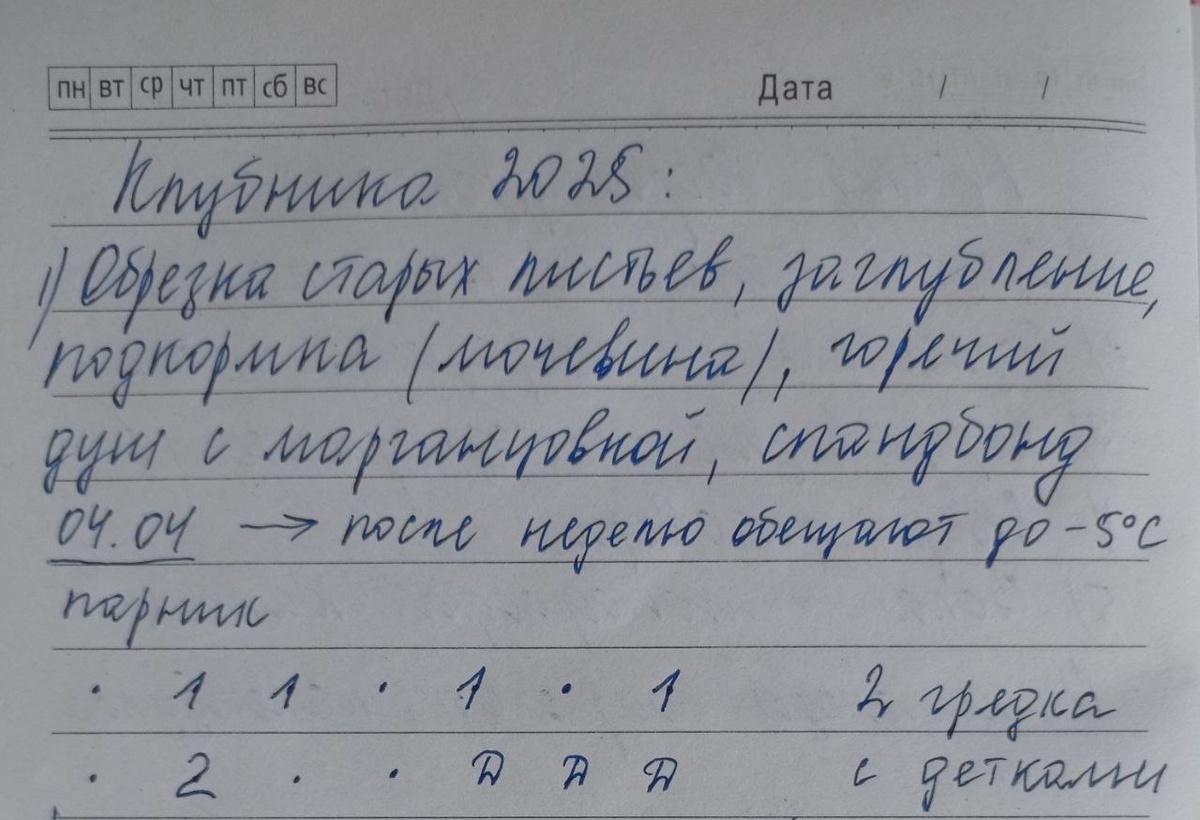 пн вт ср чт пт сб вс Дата / /
Клубника 2025:
1) Обрезка старых листьев, заглубление,
подкормка (мочевина), горечий
душ с марганцовкой, спандбонд
04.04 → после неделю обещают до -5°С
парник
· 1 1 · 1 · 1 2 грядка
· 2 · · Д Д Д с детками